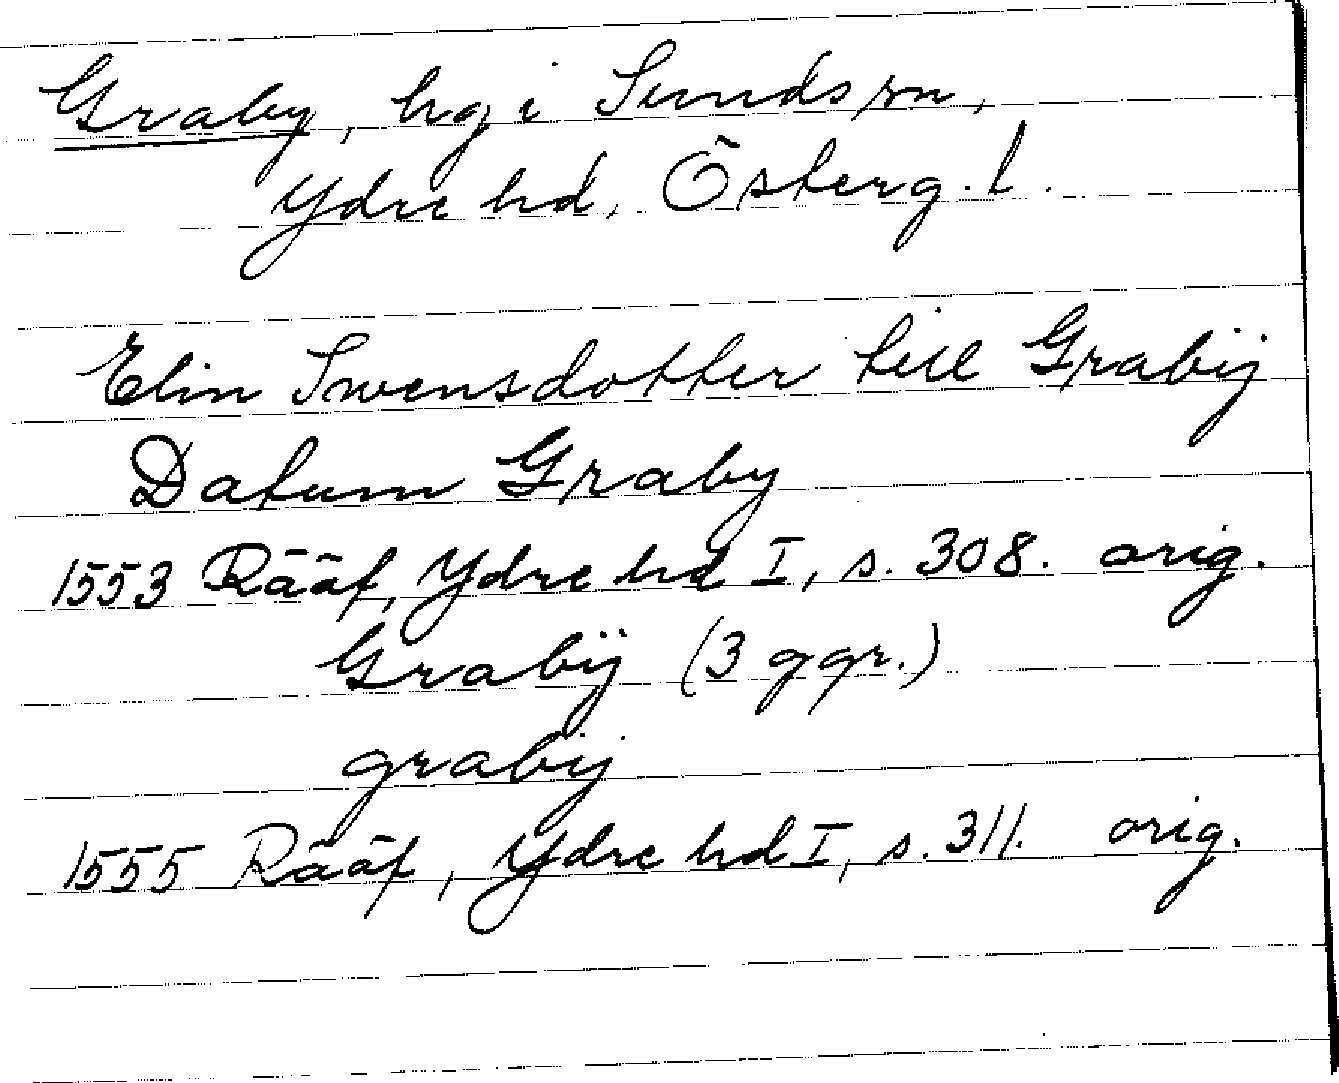 Graby, hg i Sunds sn,
Ydre hd, Österg. l.
Elin Swensdotter till Grabÿ
Datum Graby
1553 Rääf, Ydre hd I, s. 308. orig.
Grabÿ (3 ggr.)
grabÿ
1555 Rääf, Ydre hd I, s. 311. orig.